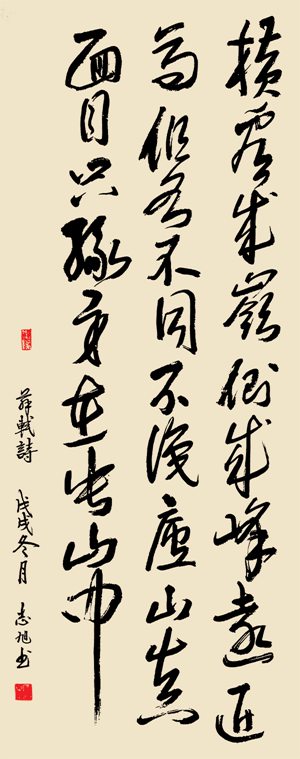 橫看成嶺側成峰遠近
高低各不同不識廬山真
面目只緣身在此山中
蘇軾詩 戊戌冬月 志旭书